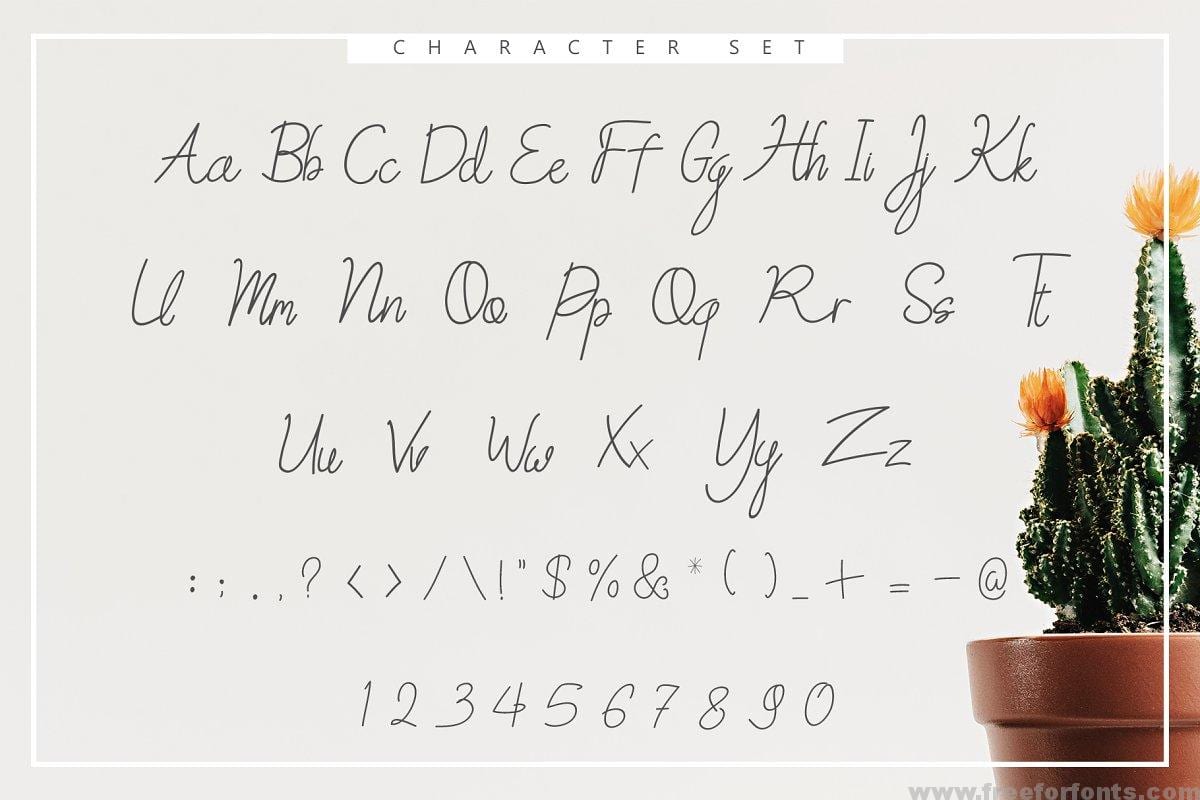 CHARACTER SET
Aa Bb Cc Dd Ee Ff Gg Hh Ii Jj Kk
Ll Mm Nn Oo Pp Qq Rr Ss Tt
Uu Vv Ww Xx Yy Zz
: ; . , ? < > / \ ! " $ % & * ( ) _ + = - @
1 2 3 4 5 6 7 8 9 0
www.freeforfonts.com